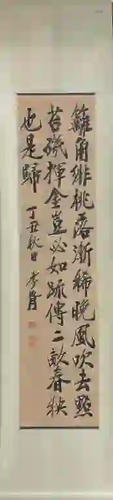 籬角緋桃落漸稀晚風吹去點
苔磯揮金豈必如疏傅二畝春秧
也是歸
丁丑秋日李